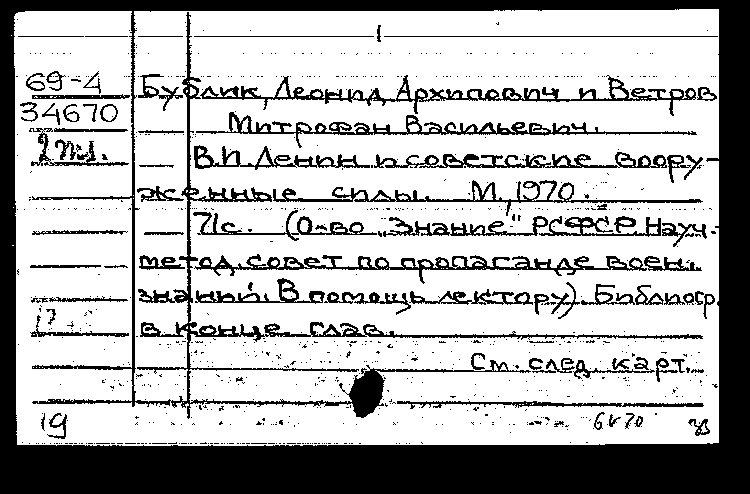 1
69-4
Бублик, Леонид Архипович и Ветров
34670
Митрофан Васильевич.
В.И. Ленин и советские воору-
женные силы. М., 1970.
71с. (О-во "Знание" РСФСР. Науч.-
метод. совет по пропаганде воен.
знаний. В помощь лектору). Библиогр.
17
в конце глав.
См. след. карт.
19